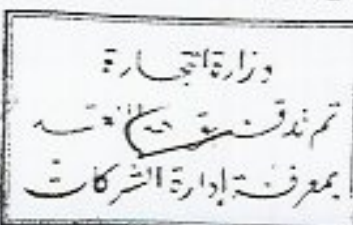 وزارة التجارة
تم تدقيق
بمعرفة إدارة الشركات